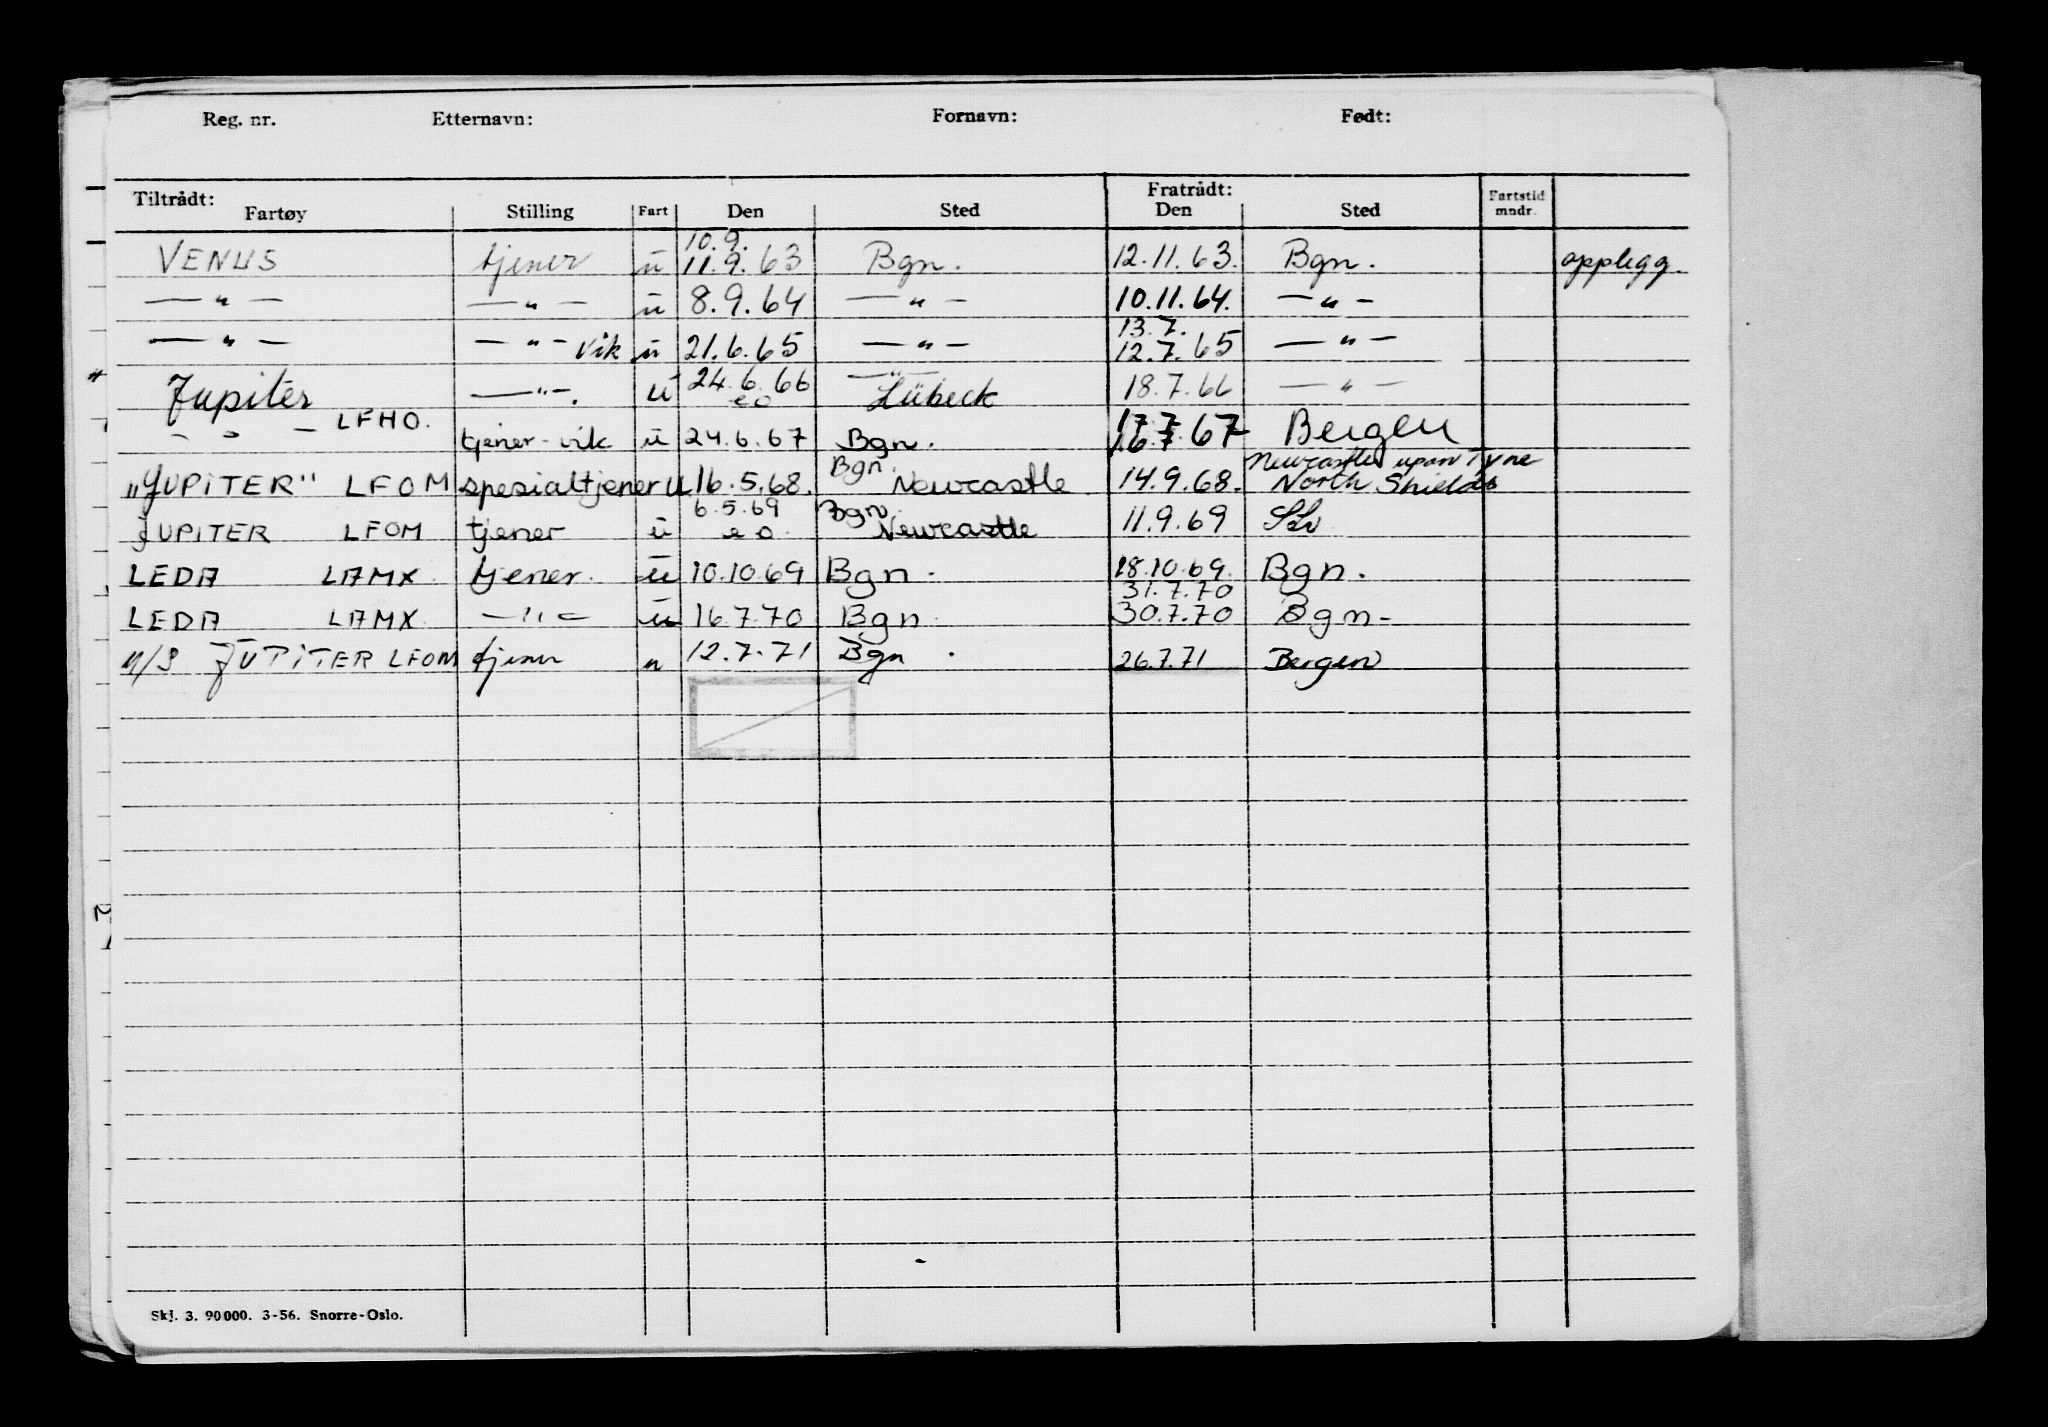 Reg. nr. Etternavn: Fornavn: Født:
Tiltrådt: Fratrådt:
Fartøy Stilling Fart Den Sted Den Sted Fartstid mndr.
10.9.
VENUS tjener u 11.9.63 Bgn. 12.11.63. Bgn. opplegg.
— " — — " — u 8.9.64 — " — 10.11.64. — " —
13.7.
— " — — " — vik u 21.6.65 — " — 12.7.65 — " —
24.6.66 — " —
Jupiter — " —. u eo Lübeck 18.7.66 — " —
LFHO. 17.7.
— " — tjener-vik u 24.6.67 Bgn. 16.7.67 Bergen
Bgn. Newcastle upon Tyne
"JUPITER" LFOM spesialtjener u 16.5.68. Newcastle 14.9.68. North Shields
6.5.69 Bgn.
JUPITER LFOM tjener u eo. Newcastle 11.9.69
LEDA LAMX. tjener. u 10.10.69 Bgn. 18.10.69. Bgn.
31.7.70
LEDA LAMX. — " — u 16.7.70 Bgn. 30.7.70 Bgn-
M/S JUPITER LFOM tjener u 12.7.71 Bgn. 26.7.71 Bergen
Skj. 3. 90000. 3-56. Snorre-Oslo.